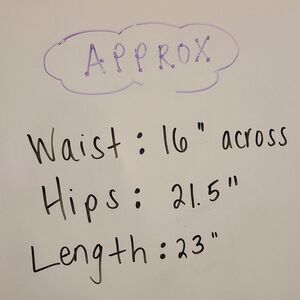 APPROX
Waist: 16" across
Hips: 21.5"
Length: 23"